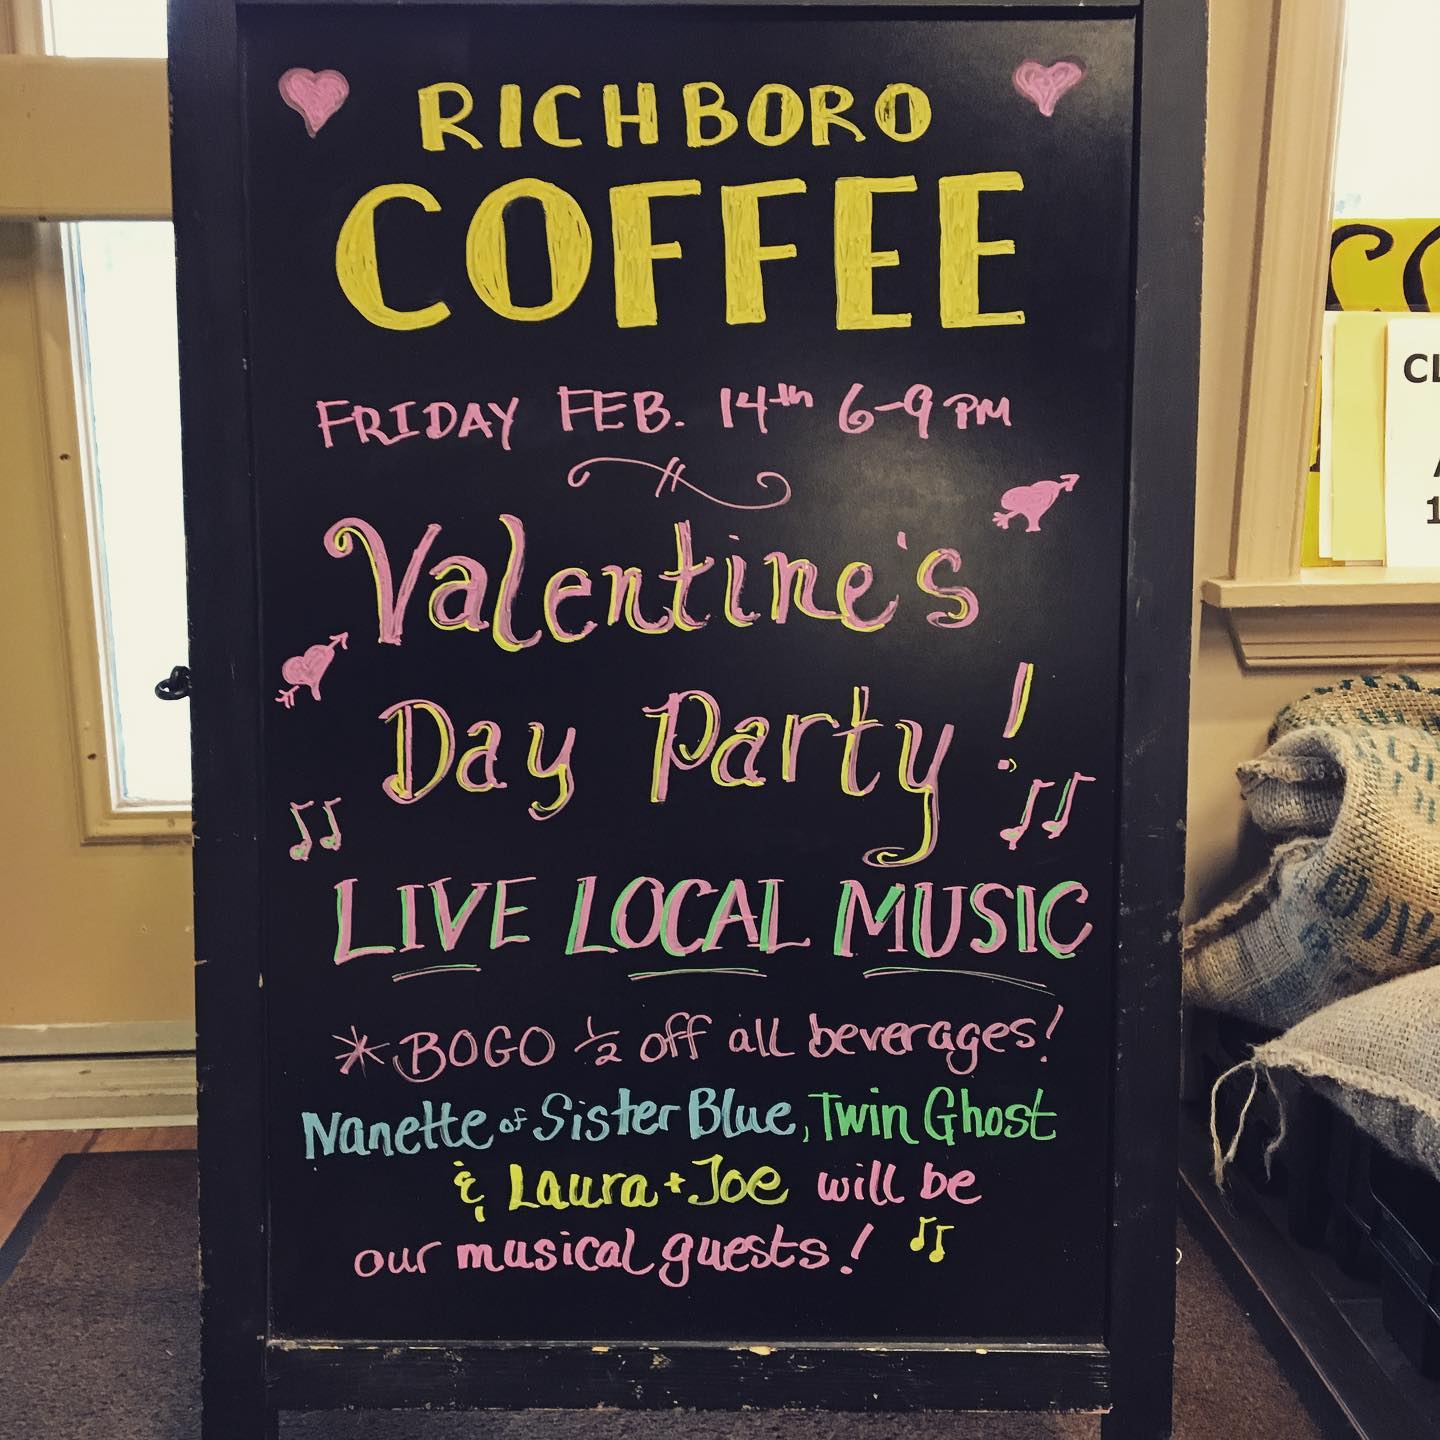 RICHBORO
COFFEE
FRIDAY FEB. 14th 6-9 PM
Valentine's
Day Party!
LIVE LOCAL MUSIC
*BOGO ½ off all beverages!
Nanette of Sister Blue, Twin Ghost
& Laura + Joe will be
our musical guests!
CL
1